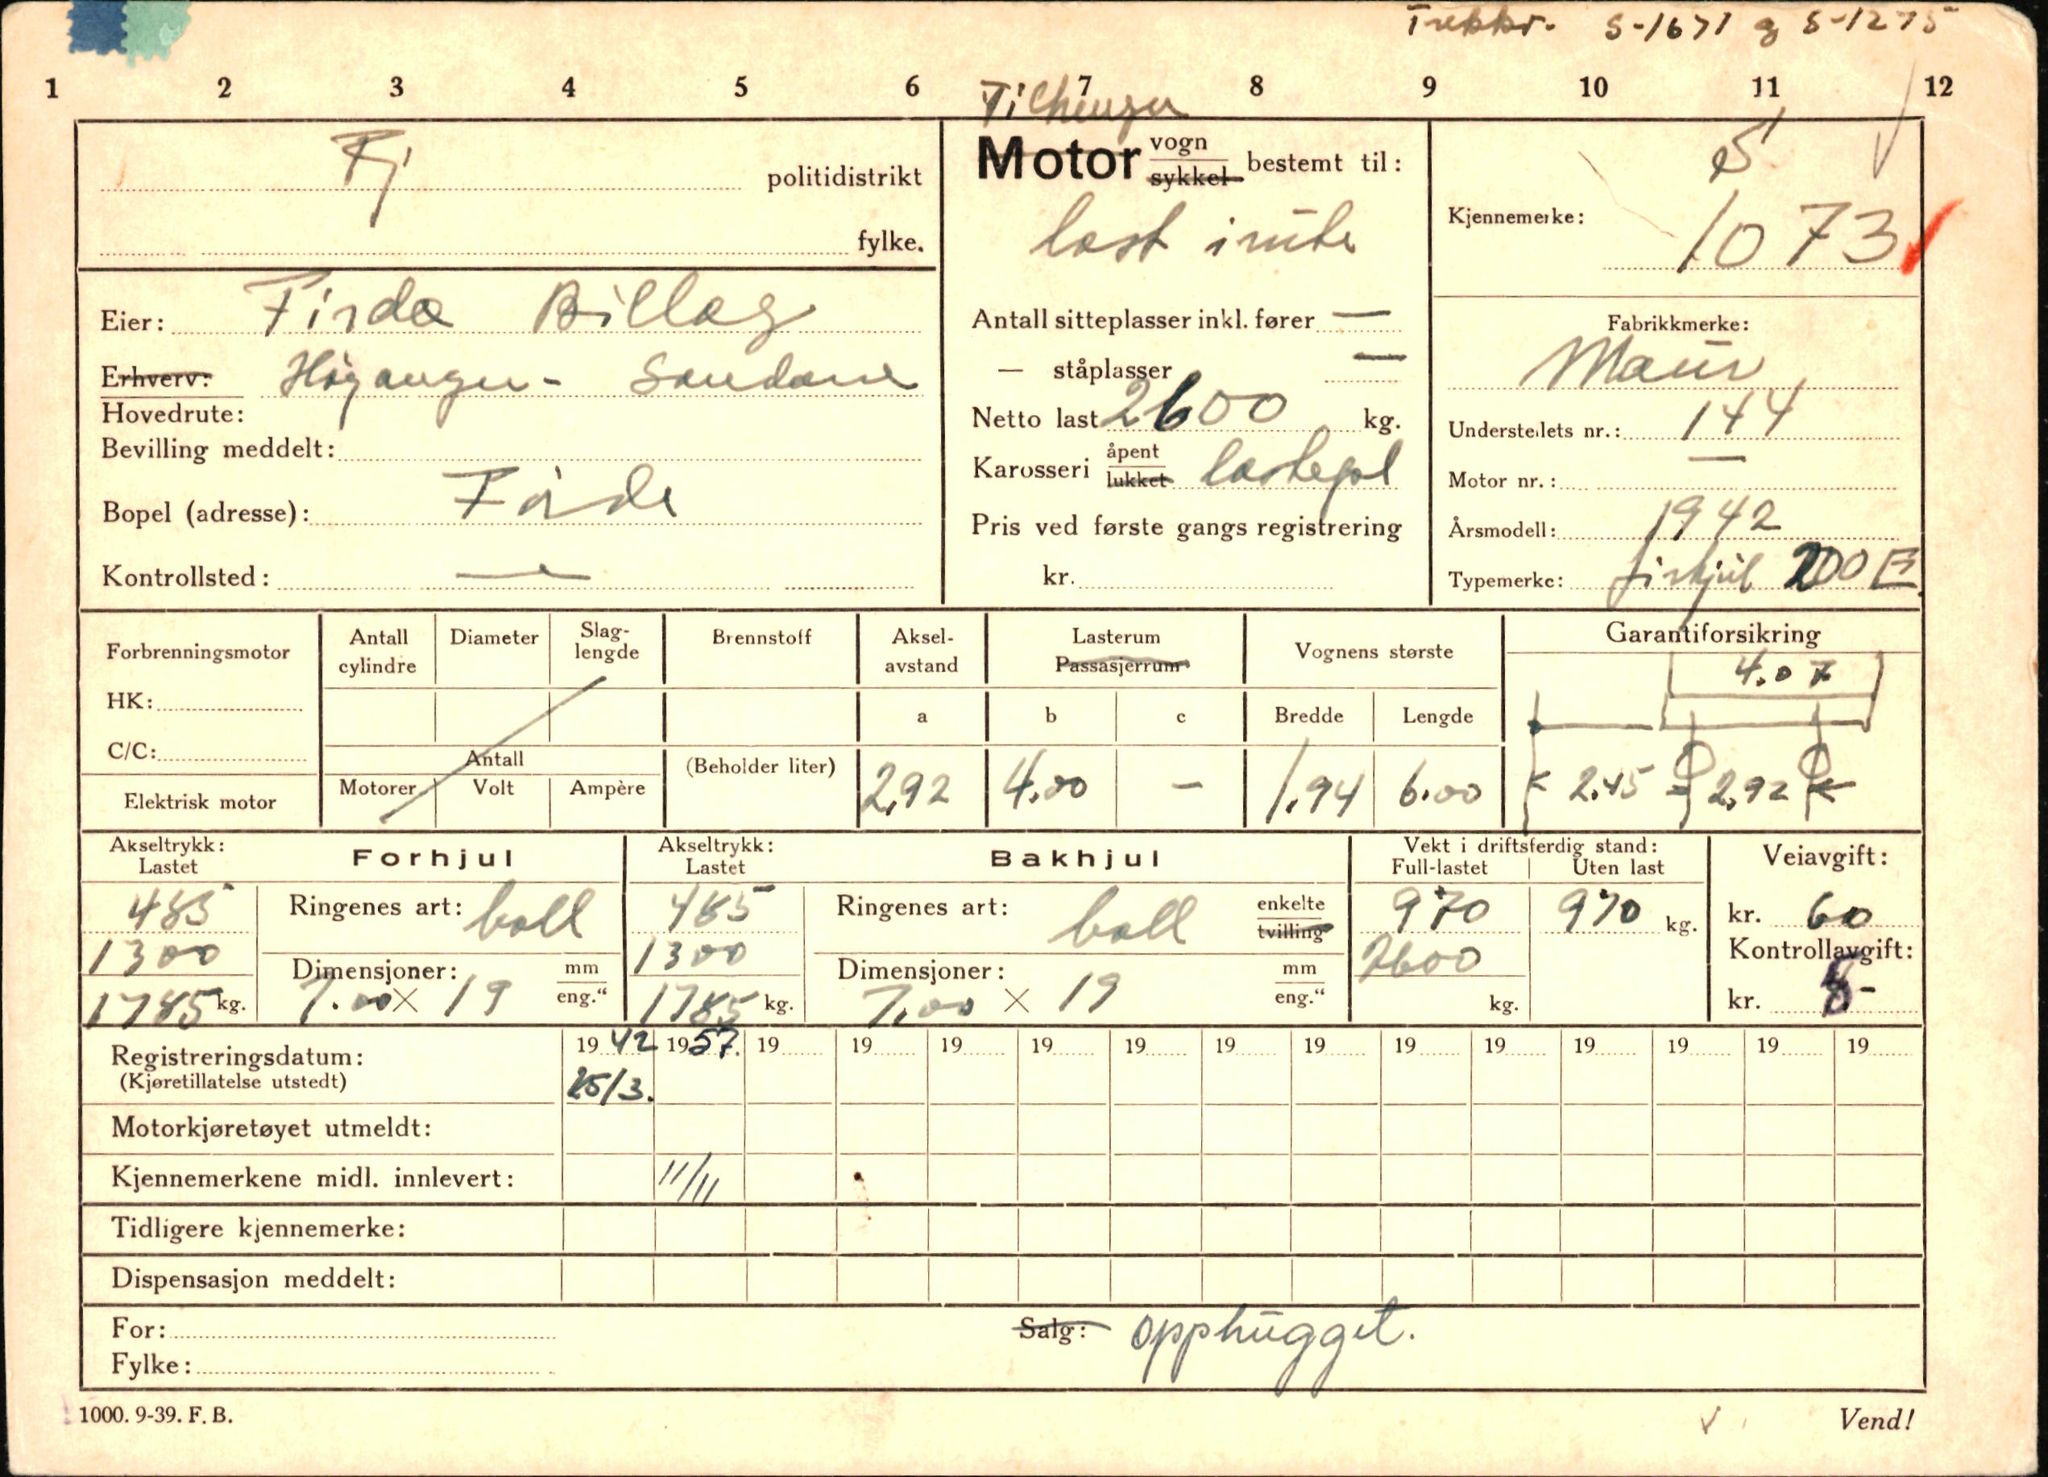 Trekkv. S-1671 og S-1275
1 2 3 4 5 6 7 8 9 10 11 12
Fj politidistrikt
fylke.
Eier: Firda Billag
Erhverv: Høyanger - Sandane
Hovedrute:
Bevilling meddelt:
Bopel (adresse): Førde
Kontrollsted: —
Tilhenger
Motor vogn sykkel bestemt til:
last i rute
Antall sitteplasser inkl. fører —
— ståplasser —
Netto last 2600 kg.
Karosseri åpent lukket lastepl
Pris ved første gangs registrering
kr.
S
Kjennemerke: 1073
Fabrikkmerke:
Maur
Understellets nr.: 144
Motor nr.: —
Årsmodell: 1942
Typemerke: firhjul 200 E
Forbrenningsmotor
HK:
C/C:
Elektrisk motor
Antall cylindre
Diameter
Slag-lengde
Antall
Motorer Volt Ampère
Brennstoff
(Beholder liter)
Aksel-avstand
a
2,92
Lasterum
Passasjerrum
b c
4.00 -
Vognens største
Bredde Lengde
1,94 6.00
Garantiforsikring
4.07
2.45 2,92
Akseltrykk: Forhjul
Lastet
485
1300
1785 kg.
Ringenes art: ball
Dimensjoner: mm
7.00 × 19 eng."
Akseltrykk: Bakhjul
Lastet
485
1300
1785 kg.
Ringenes art: ball enkelte tvilling
Dimensjoner: mm
7.00 × 19 eng."
Vekt i driftsferdig stand:
Full-lastet Uten last
970 970 kg.
2600
kg.
Veiavgift:
kr. 60
Kontrollavgift:
kr. 8-
Registreringsdatum: 1942 1957. 19 19 19 19 19 19 19 19 19 19 19 19 19
(Kjøretillatelse utstedt) 25/3.
Motorkjøretøyet utmeldt:
Kjennemerkene midl. innlevert: 11/11
Tidligere kjennemerke:
Dispensasjon meddelt:
For: Salg: opphugget.
Fylke:
1000. 9-39. F. B. Vend!